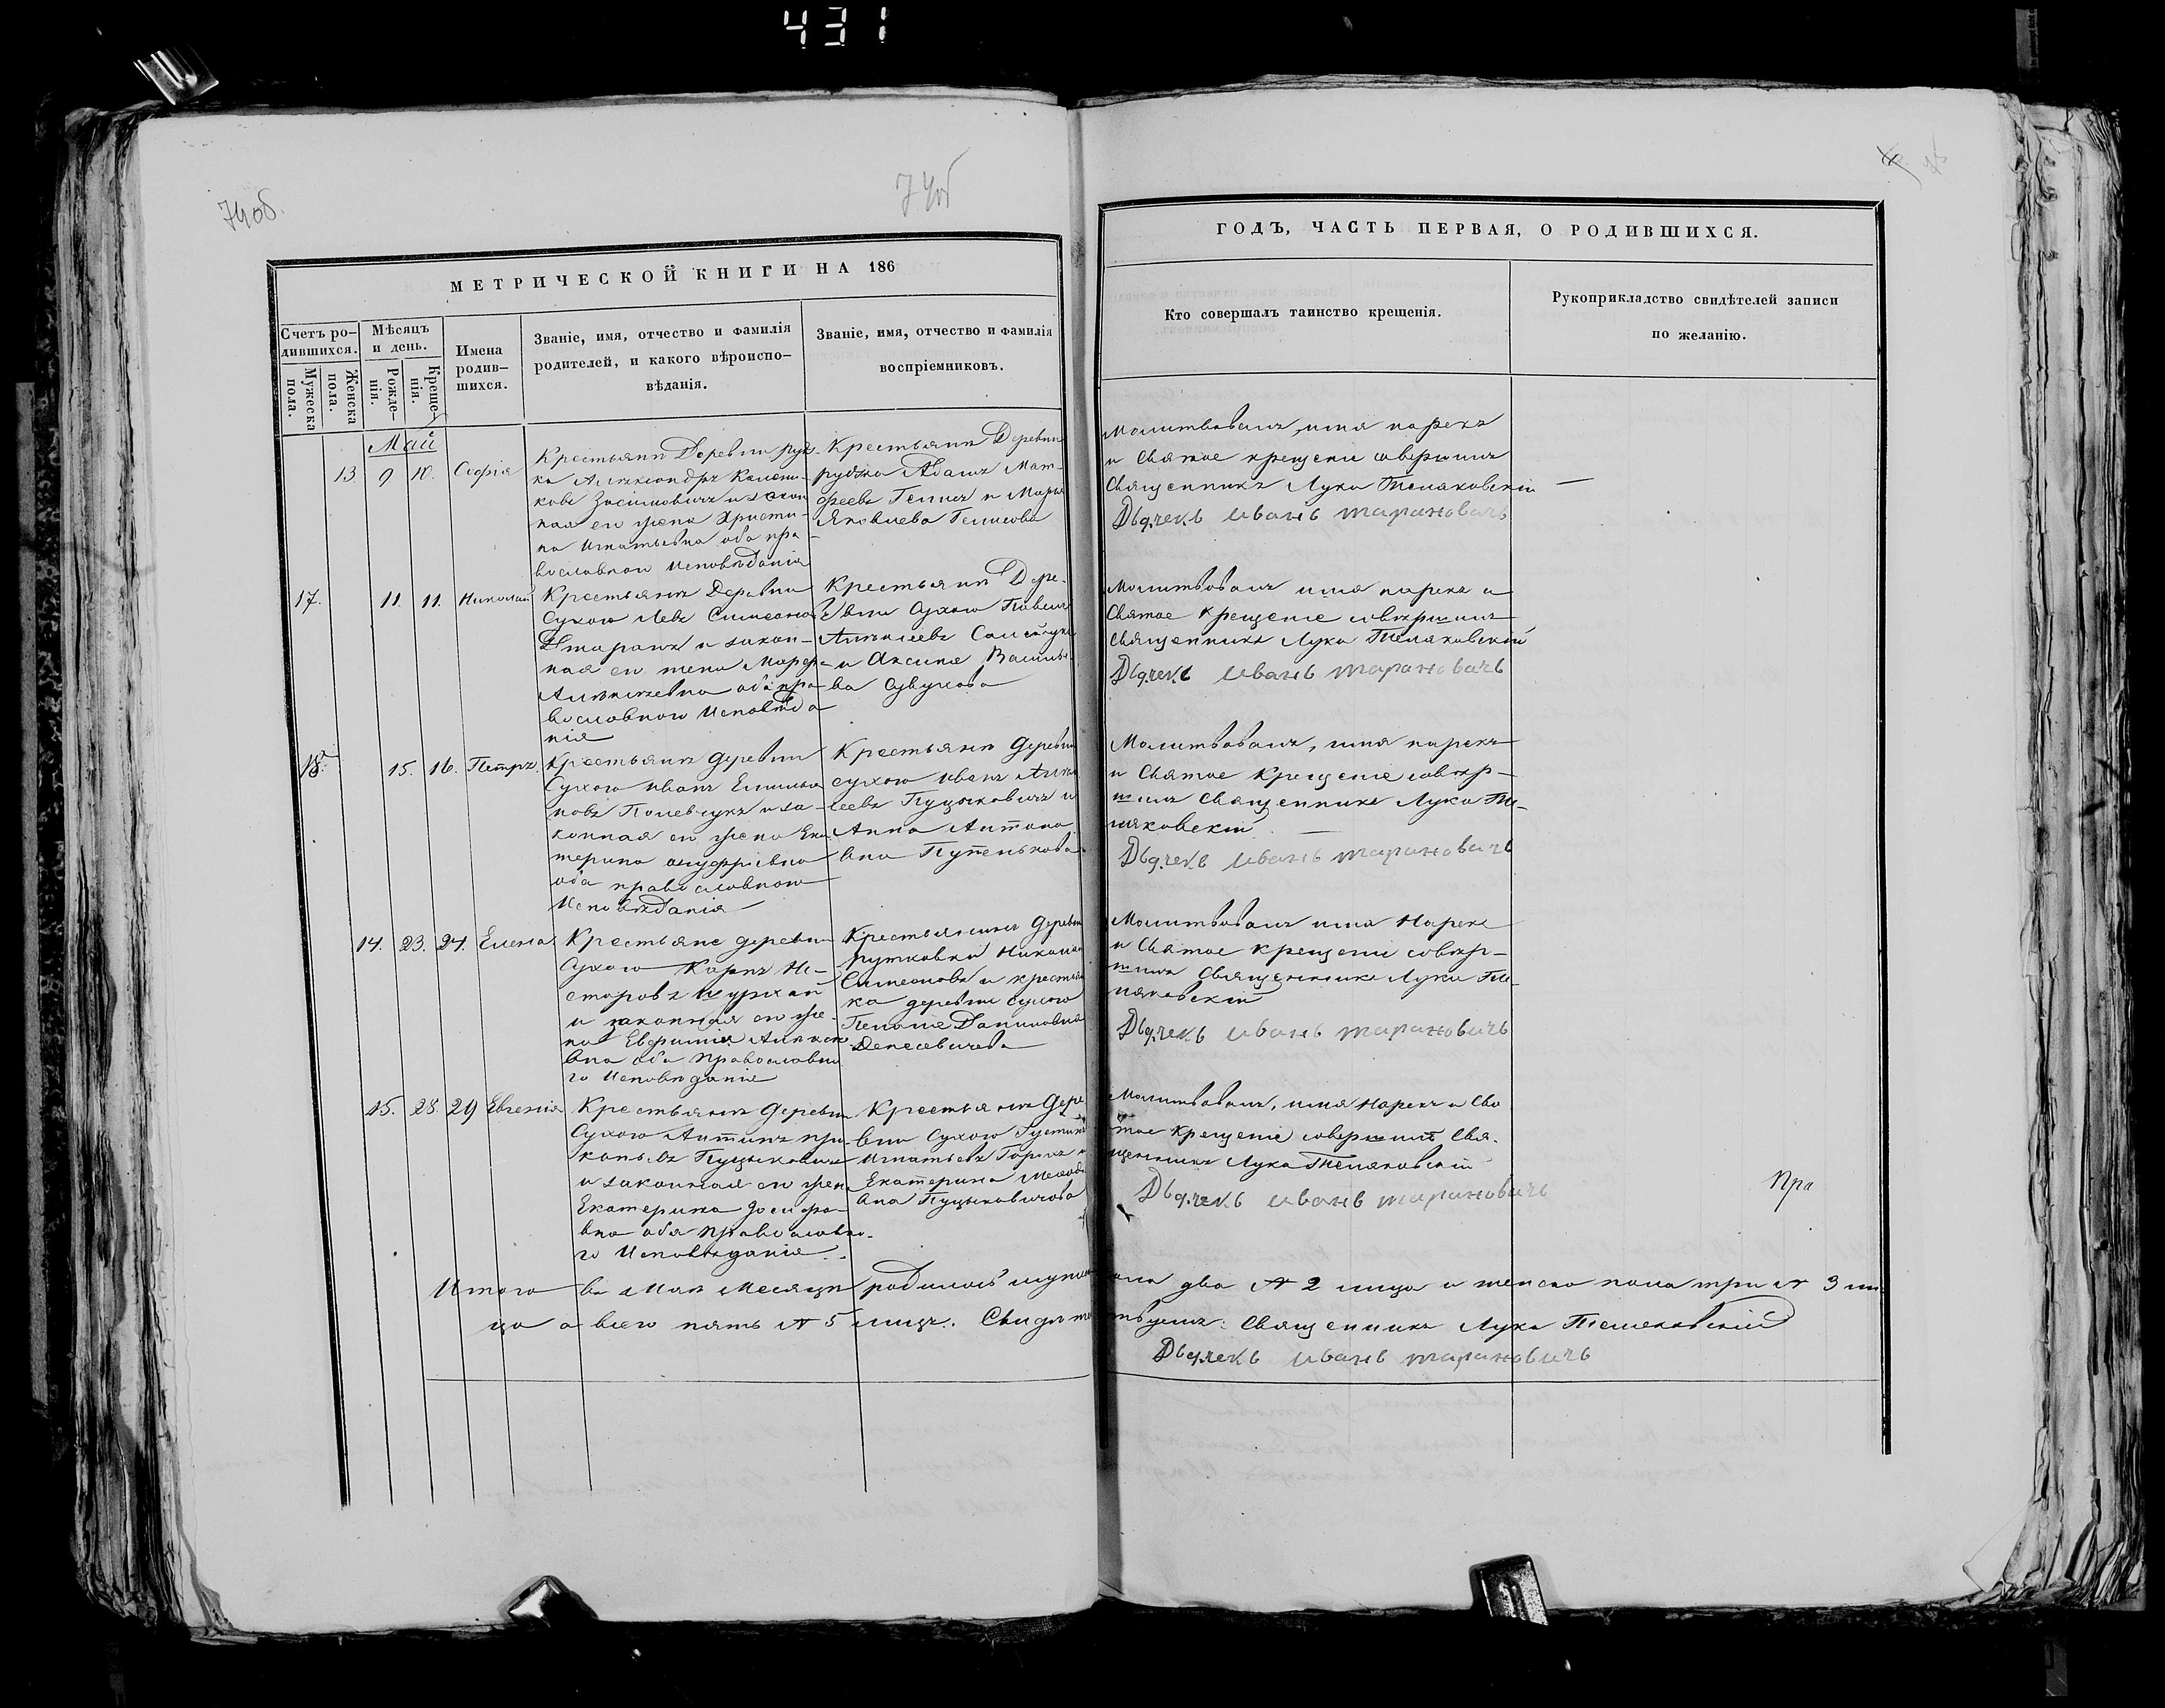 431
74об.
74об
МЕТРИЧЕСКОЙ КНИГИ НА 186
Счетъ ро-
дившихся.
Мужеска
пола.
Женска
пола.
Мѣсяцъ
и день.
Рожде-
нія.
Креще-
нія.
Имена
родив-
шихся.
Званіе, имя, отчество и фамилія
родителей, и какого вѣроиспо-
вѣданія.
Званіе, имя, отчество и фамилія
воспріемниковъ.
ГОДЪ, ЧАСТЬ ПЕРВАЯ, О РОДИВШИХСЯ.
Кто совершалъ таинство крещенія.
Рукоприкладство свидѣтелей записи
по желанію.
Май
13. 9 10. Софія
Крестьянинъ Деревни
и закон
ная его жена Христи-
на Игнатьевна оба пра
вославнаго Исповѣданія
Крестьянинъ Деревни
Адамъ Мат-
феевъ и Марья
Яковлева
Молитвовалъ, имя нарекъ
и Святое крещеніе совершилъ
Священникъ Лука Теляковскій
Дьячекъ Иванъ Тарановичъ
17. 11. 11. Николай
Крестьянинъ Деревни
Сухого Левъ Симеоновъ
и закон-
ная его жена
оба пра-
вославного Исповѣда
нія
Крестьянинъ Дере-
вни Сухого Павелъ
Алексеевъ
и Аксинья Василье-
ва
Молитвовалъ имя нарекъ и
Святое Крещеніе совершилъ
Священникъ Лука Теляковскій
Дьячекъ Иванъ Тарановичъ
18. 15. 16. Петръ.
Крестьянинъ деревни
Сухого Иванъ Емилья
новъ Полевчукъ и за-
конная его жена Ека
терина Онуфріевна
оба православного
Исповѣданія
Крестьянинъ деревни
Сухого Иванъ Алек
сеевъ Пуцыковичъ и
Анна Антоно
вна
Молитвовалъ, имя нарекъ
и Святое Крещеніе совер-
шилъ Священникъ Лука Те-
ляковскій
Дьячекъ Иванъ Тарановичъ
14. 23. 24. Елена
Крестьяне деревни
Сухого Карпъ Не-
сторовъ
и законная его же-
на
вна оба Православна
го Исповѣданія
Крестьянинъ деревни
Рутковки Николай
Симеоновъ и крестьян
ка деревни Сухого
Даниловна
Молитвовалъ имя Нарекъ
и Святое крещеніе совер-
шилъ Священникъ Лука Те-
ляковскій
Дьячекъ Иванъ Тарановичъ
15. 28. 29 Евгенія
Крестьянинъ деревни
Сухого Антипъ Про-
копьевъ Пуцыковичъ
и законная его жена
Екатерина
вна оба Православна-
го Исповѣданія
Крестьянинъ Дере
вни Сухого
Игнатьевъ
Екатерина
вна Пуцыковичова
Молитвовалъ, имя Нарекъ и Свя
тое Крещеніе совершилъ Свя-
щенникъ Лука Теляковскій
Дьячекъ Иванъ Тарановичъ
Пра
Итого въ Маѣ Месяцѣ родилось мужска пола два № 2 лица и женска пола три № 3 ли
ца а всего пять № 5 лицъ. Свидѣтельствуемъ: Священникъ Лука Теляковскій
Дьячекъ Иванъ Тарановичъ